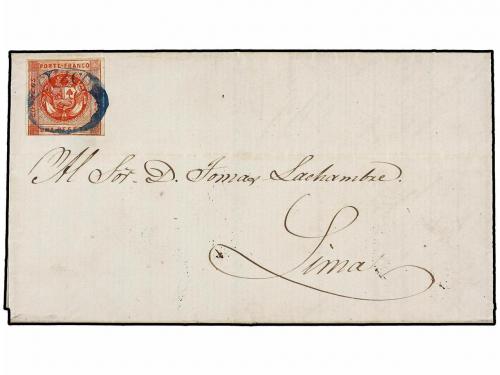 PORTE FRANCO
Al Sór. D. Tomas Lachambre.
Lima